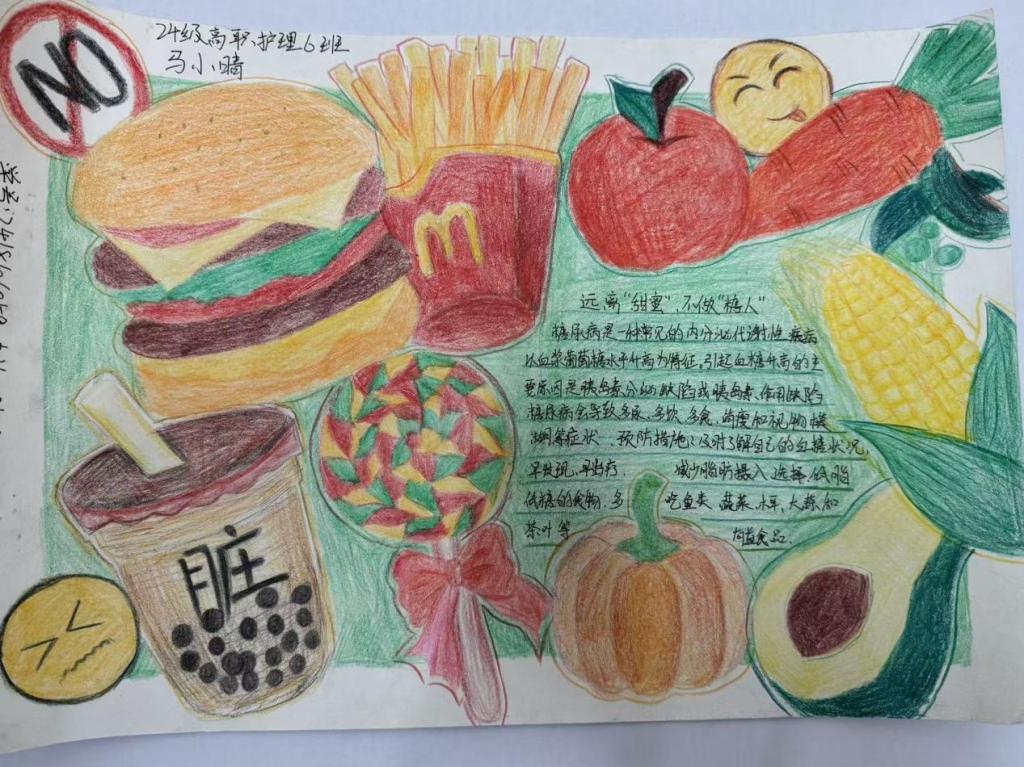 NO
24级高职护理6班
马小晴
学号:
M
脏
远离"甜蜜",不做"糖人"
糖尿病是一种常见的内分泌代谢性疾病
以血浆葡萄糖水平升高为特征,引起血糖升高的主
要原因是胰岛素分泌缺陷或胰岛素作用缺陷
糖尿病会导致多尿、多饮、多食、消瘦和视物模
糊等症状.预防措施:及时了解自己的血糖状况,
早发现,早治疗 减少脂肪摄入 选择低脂
低糖的食物,多 吃鱼类 蔬菜、水果,大蒜和
茶叶等 有益食品.